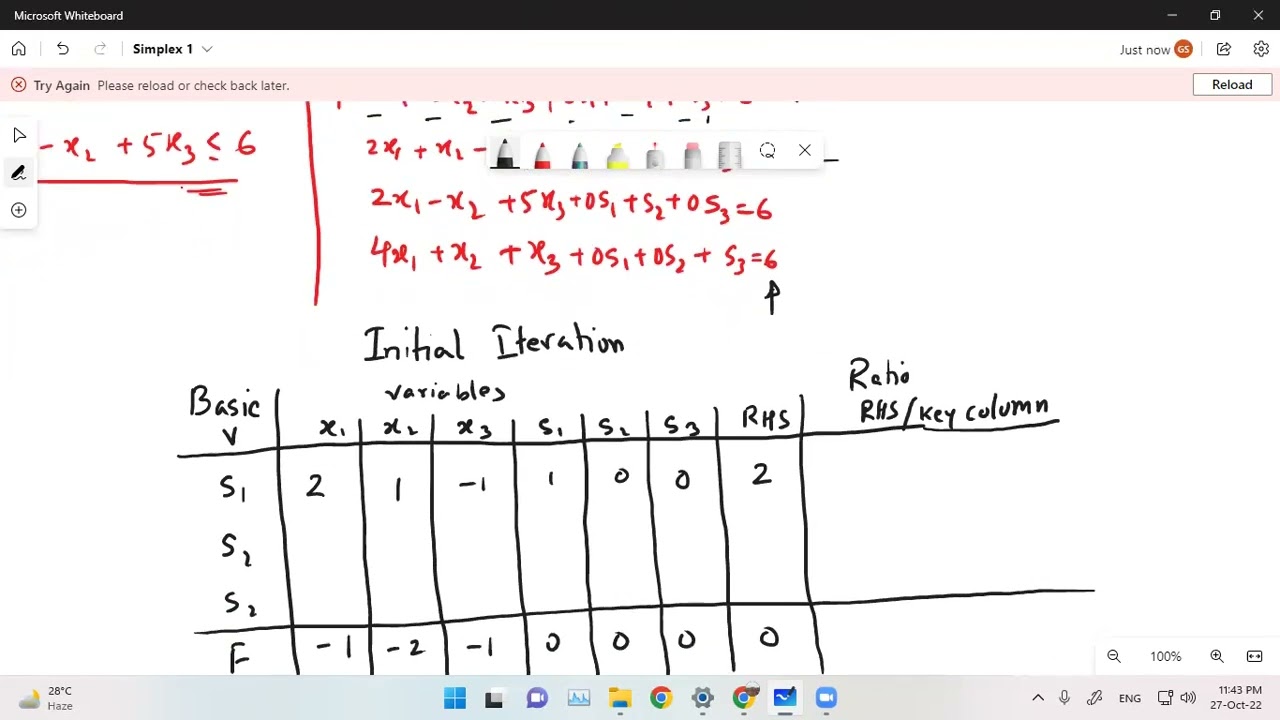 Microsoft Whiteboard
Simplex 1
Just now GS
Try Again Please reload or check back later.
Reload
- x₂ + 5x₃ ≤ 6
2x₁ + x₂ -
2x₁ - x₂ + 5x₃ + 0s₁ + s₂ + 0s₃ = 6
4x₁ + x₂ + x₃ + 0s₁ + 0s₂ + s₃ = 6
Initial Iteration
Basic V variables Ratio
x₁ x₂ x₃ s₁ s₂ s₃ RHS RHS/key column
s₁ 2 1 -1 1 0 0 2
s₂
s₂
F -1 -2 -1 0 0 0 0
100%
28°C
Haze
ENG
11:43 PM
27-Oct-22